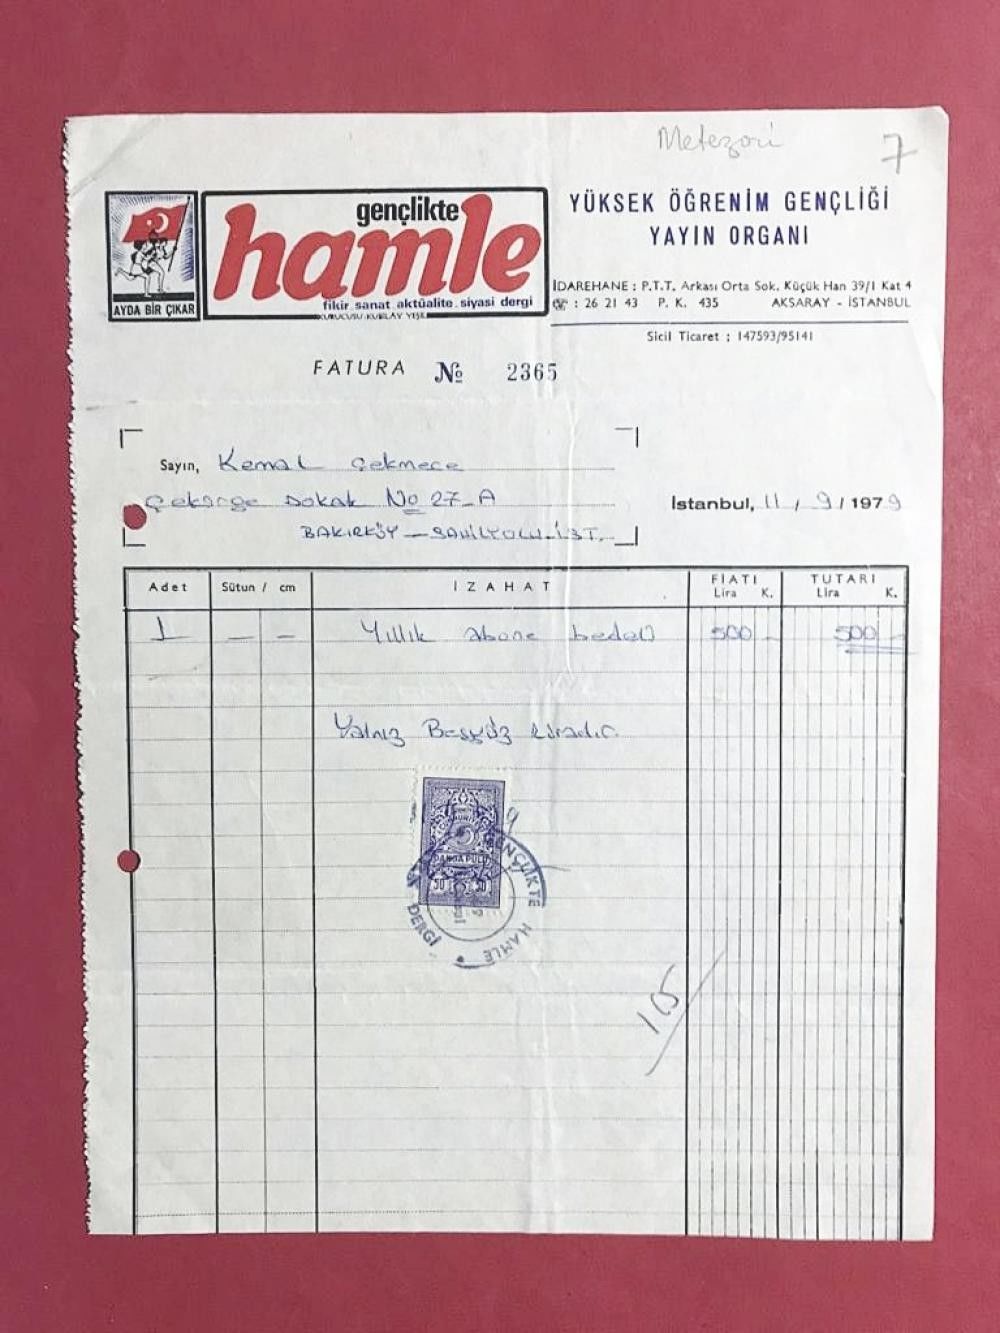 Metezori 7
gençlikte
hamle
fikir.sanat.aktüalite.siyasi dergi
KURUCUSU: KUBİLAY YEŞİL
AYDA BİR ÇIKAR
YÜKSEK ÖĞRENİM GENÇLİĞİ
YAYIN ORGANI
İDAREHANE : P.T.T. Arkası Orta Sok. Küçük Han 39/1 Kat 4
☎ : 26 21 43 P. K. 435 AKSARAY - İSTANBUL
Sicil Ticaret : 147593/95141
FATURA № 2365
Sayın, Kemal Çekmece
Çekirge Sokak No 27-A
BAKIRKÖY - SAHİLYOLU-İST.
İstanbul, 11 / 9 / 1979
Adet Sütun / cm İZAHAT FİATI TUTARI
Lira K. Lira K.
1 — — Yıllık abone bedeli 500 - 500 -
Yalnız Beşyüz liradır.
DAMGA PULU
GENÇLİKTE HAMLE
DERGİ
115